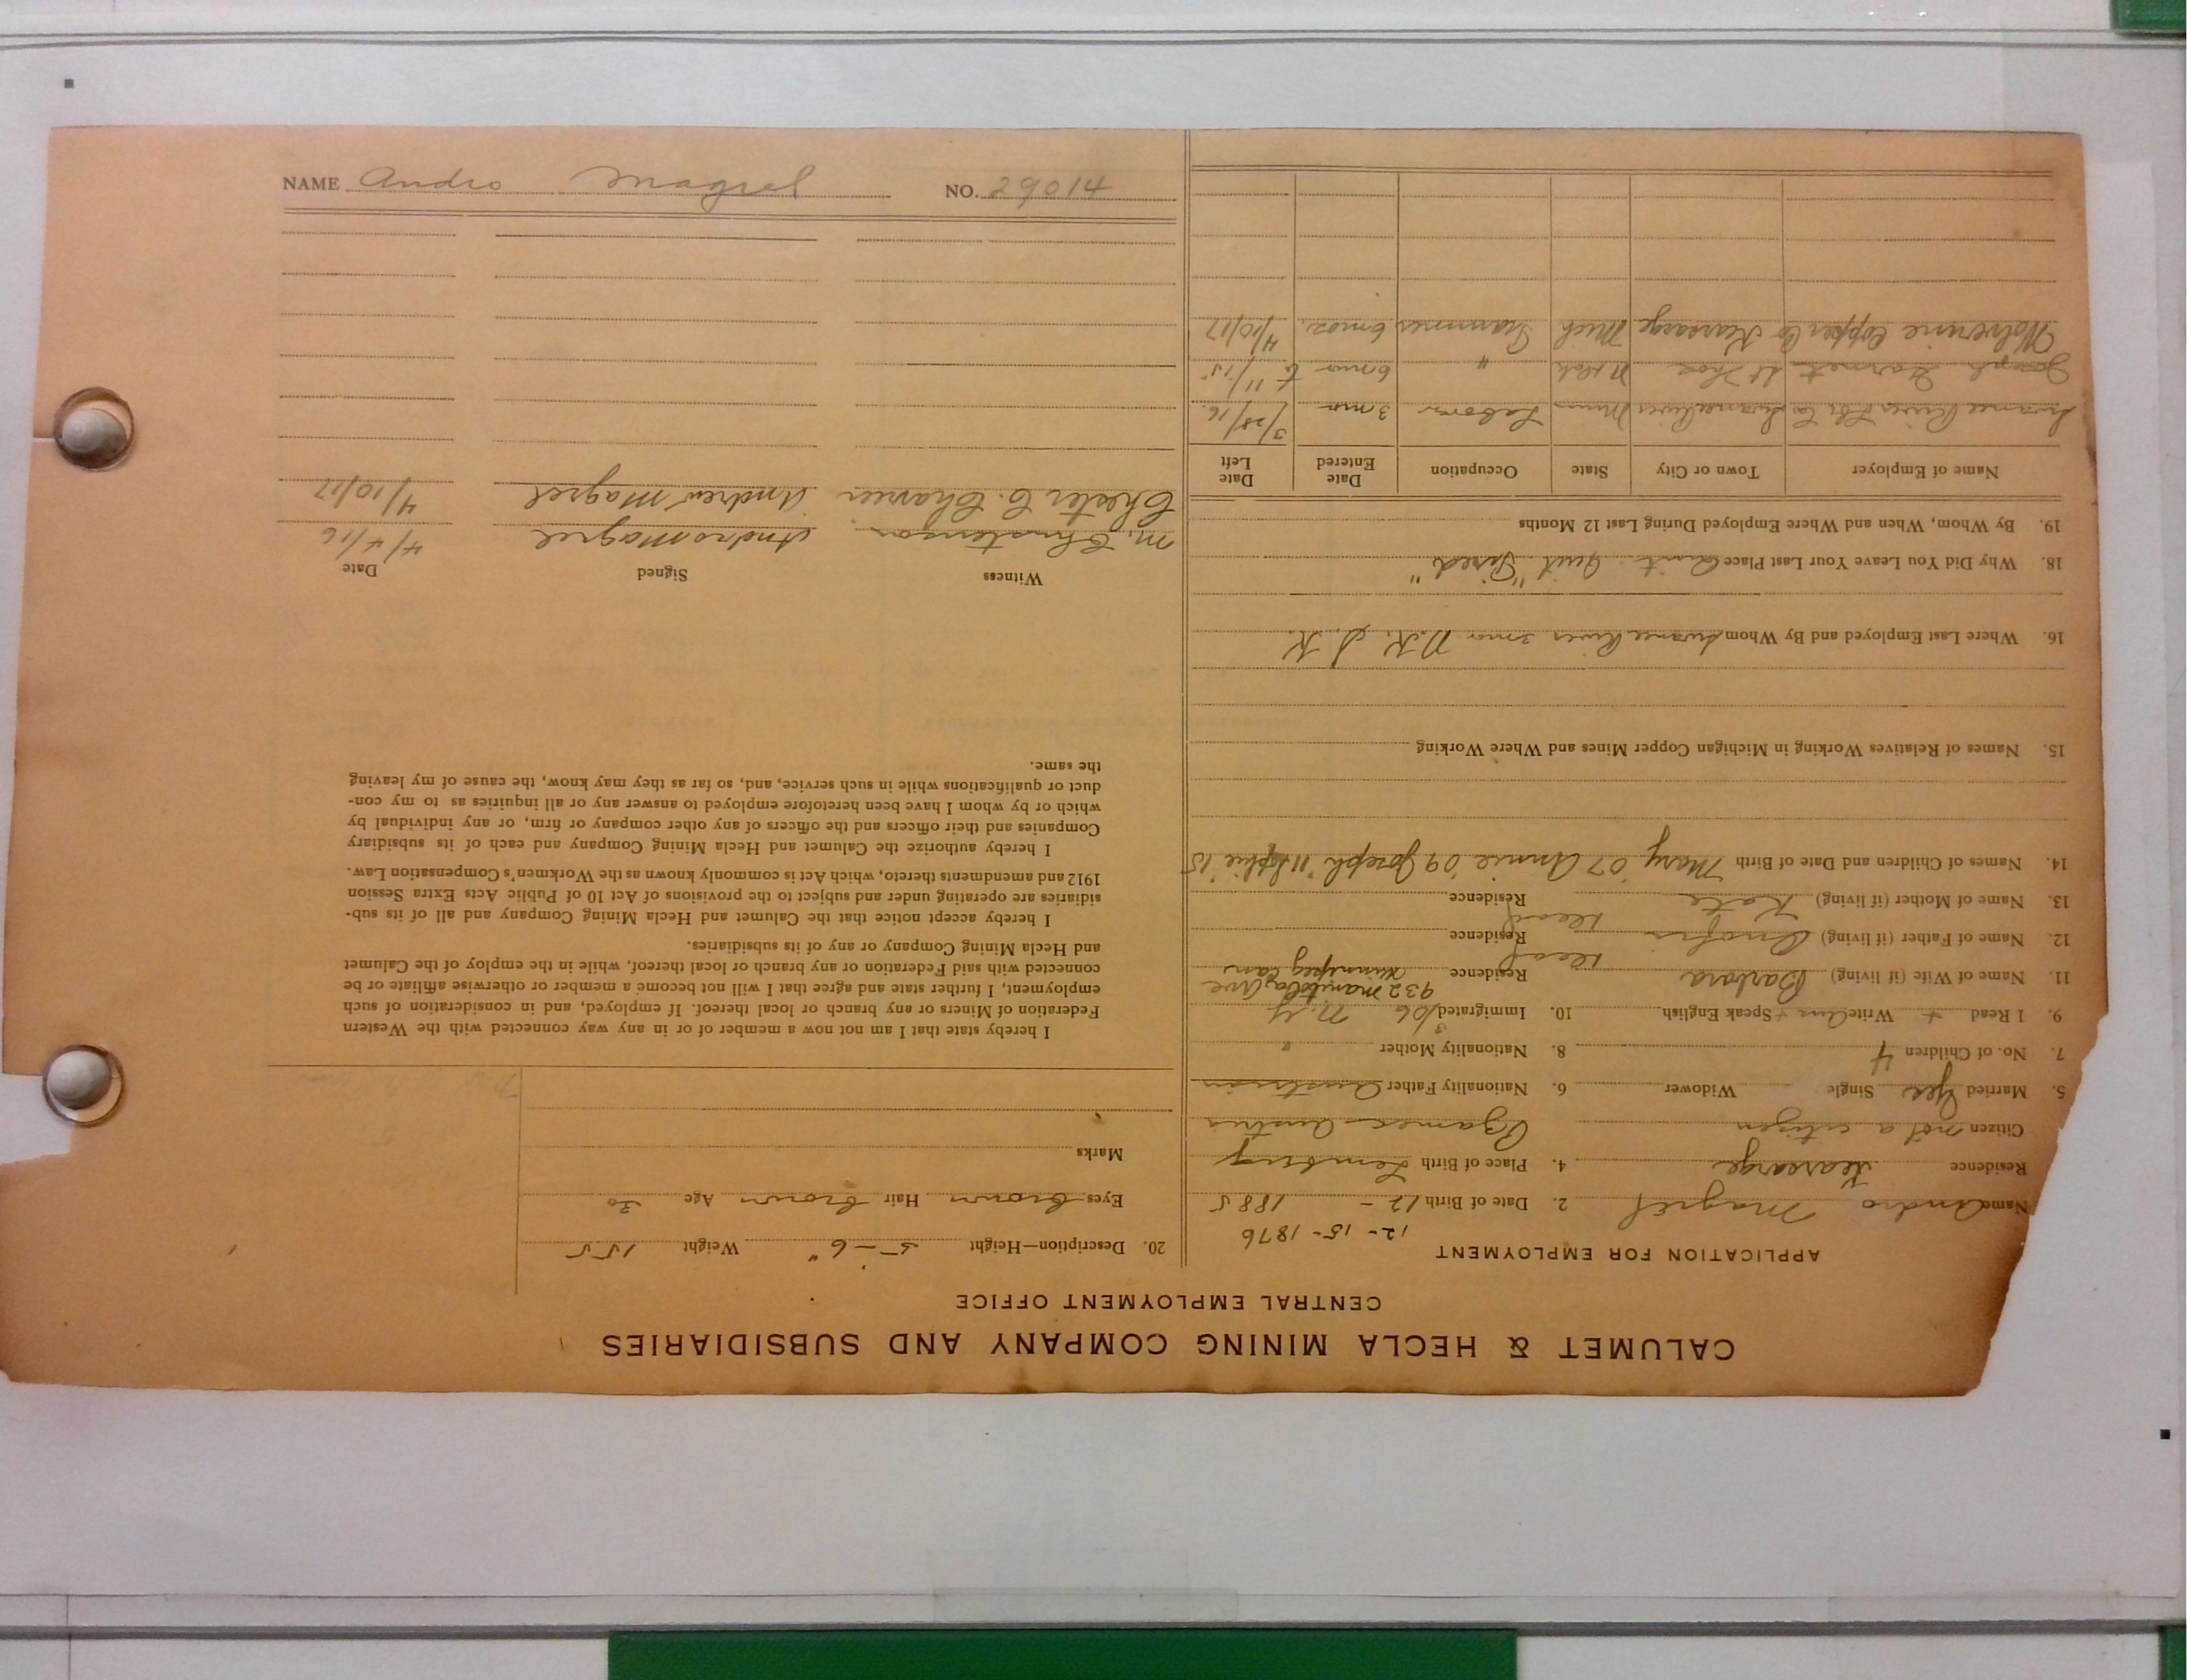 CALUMET & HECLA MINING COMPANY AND SUBSIDIARIES
CENTRAL EMPLOYMENT OFFICE
APPLICATION FOR EMPLOYMENT
12-15-1876
Name Andro Magrel
2. Date of Birth 12 - 1885
Residence Kearsarge
4. Place of Birth Lemberg
Citizen not a citizen
Austria
5. Married Yes Single Widower
6. Nationality Father Austrian
7. No. of Children 4
8. Nationality Mother "
9. I Read + Write + Speak English
10. Immigrated 3/06 N.Y.
932 Manitoba Ave
11. Name of Wife (if living) Barbara Residence Winnipeg Can
12. Name of Father (if living) Onofri Dead Residence
13. Name of Mother (if living) Kate Dead Residence
14. Names of Children and Date of Birth Mary '07 Annie '09 Joseph '11 Sophie '15
15. Names of Relatives Working in Michigan Copper Mines and Where Working
16. Where Last Employed and By Whom River 3 mos D.K. D.K.
18. Why Did You Leave Your Last Place Quit Quit "Tired"
19. By Whom, When and Where Employed During Last 12 Months
Name of Employer Town or City State Occupation Date Entered Date Left
River Lbr Co Minn Laborer 3 mos 3/28/16
Joseph " 6 mos 11/15
Wolverine Copper Co Kearsarge Mich Trammer 6 mos. 4/10/17
20. Description—Height 5-6" Weight 155
Eyes brown Hair brown Age 30
Marks
I hereby state that I am not now a member of or in any way connected with the Western
Federation of Miners or any branch or local thereof. If employed, and in consideration of such
employment, I further state and agree that I will not become a member or otherwise affiliate or be
connected with said Federation or any branch or local thereof, while in the employ of the Calumet
and Hecla Mining Company or any of its subsidiaries.
I hereby accept notice that the Calumet and Hecla Mining Company and all of its sub-
sidiaries are operating under and subject to the provisions of Act 10 of Public Acts Extra Session
1912 and amendments thereto, which Act is commonly known as the Workmen's Compensation Law.
I hereby authorize the Calumet and Hecla Mining Company and each of its subsidiary
Companies and their officers and the officers of any other company or firm, or any individual by
which or by whom I have been heretofore employed to answer any or all inquiries as to my con-
duct or qualifications while in such service, and, so far as they may know, the cause of my leaving
the same.
Witness Signed Date
M. Christensen Andro Magrel 4/4/16
Chester C. Andrew Magrel 4/10/17
NAME Andro Magrel NO. 29014